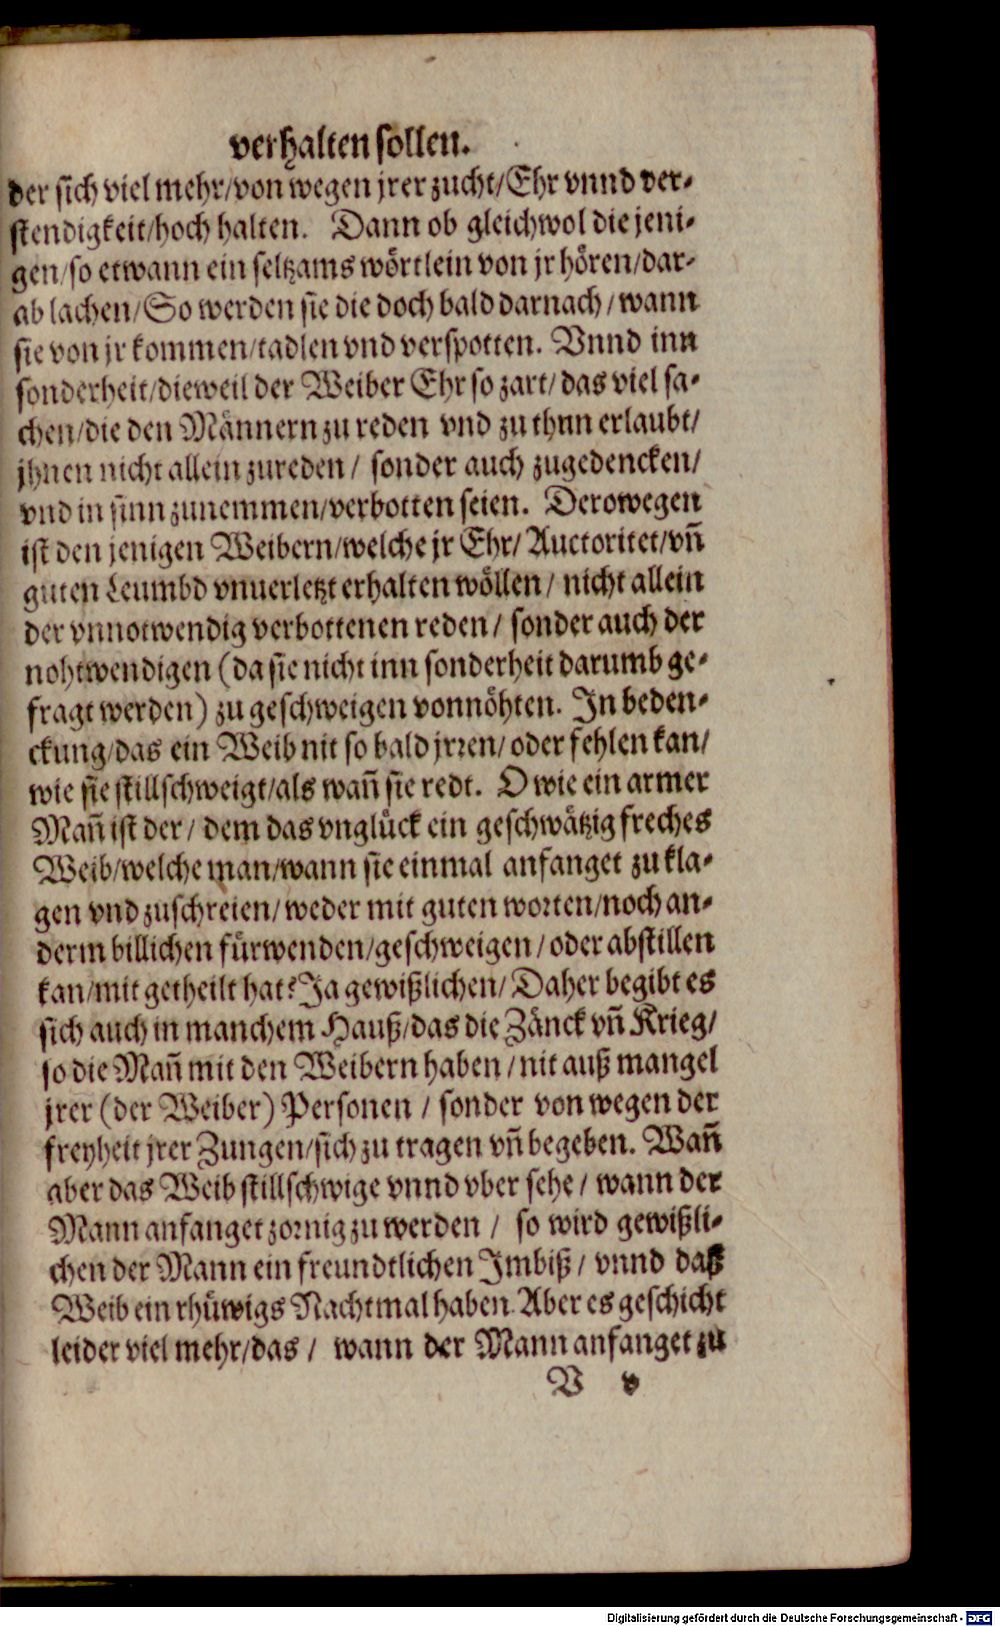 verhalten sollen.
der sich viel mehr/von wegen jrer zucht/Ehr vnnd ver-
stendigkeit/hoch halten. Dann ob gleichwol die jeni-
gen/so etwann ein seltzams wörtlein von jr hören/dar-
ab lachen/So werden sie die doch bald darnach/wann
sie von jr kommen/tadlen vnd verspotten. Vnnd inn
sonderheit/dieweil der Weiber Ehr so zart/das viel sa-
chen/die den Männern zu reden vnd zu thnn erlaubt/
jhnen nicht allein zureden/ sonder auch zugedencken/
vnd in sinn zunemmen/verbotten seien. Derowegen
ist den jenigen Weibern/welche jr Ehr/Auctoritet/vñ
guten Leumbd vnuerletzt erhalten wöllen/ nicht allein
der vnnotwendig verbottenen reden/ sonder auch der
nohtwendigen (da sie nicht inn sonderheit darumb ge-
fragt werden) zu geschweigen vonnöhten. In beden-
ckung/das ein Weib nit so bald jrren/oder fehlen kan/
wie sie stillschweigt/als wañ sie redt. O wie ein armer
Mañ ist der/ dem das vnglück ein geschwätzig freches
Weib/welche man/wann sie einmal anfanget zu kla-
gen vnd zuschreien/weder mit guten worten/noch an-
derm billichen fürwenden/geschweigen/oder abstillen
kan/mit getheilt hat? Ja gewißlichen/Daher begibt es
sich auch in manchem Hauß/das die Zänck vñ Krieg/
so die Mañ mit den Weibern haben/nit auß mangel
jrer (der Weiber) Personen/ sonder von wegen der
freyheit jrer Zungen/sich zu tragen vñ begeben. Wañ
aber das Weib stillschwige vnnd vber sehe/ wann der
Mann anfanget zornig zu werden/ so wird gewißli-
chen der Mann ein freundtlichen Imbiß/ vnnd daß
Weib ein rhüwigs Nachtmal haben. Aber es geschicht
leider viel mehr/das/ wann der Mann anfanget zu
V v
Digitalisierung gefördert durch die Deutsche Forschungsgemeinschaft - DFG